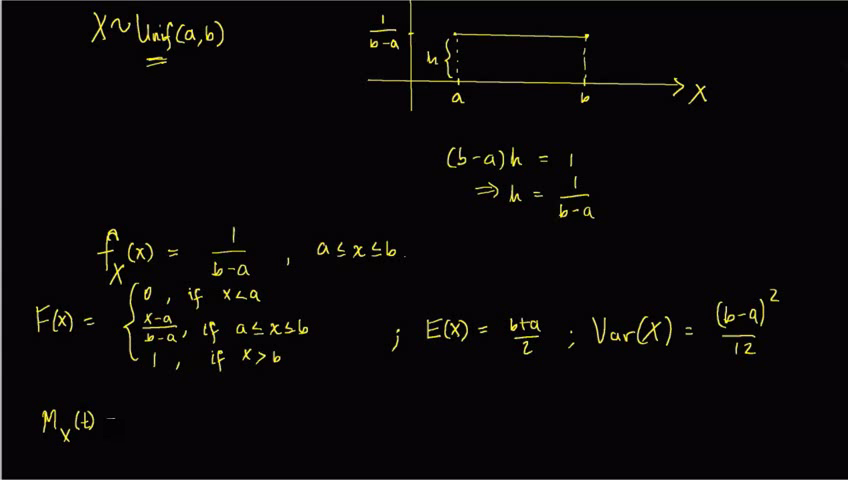 X ~ Unif(a,b)
1/(b-a)
h
a b X
(b-a)h = 1
⇒ h = 1/(b-a)
f_X(x) = 1/(b-a) , a ≤ x ≤ b.
F(x) = { 0 , if x < a
(x-a)/(b-a) , if a ≤ x ≤ b
1 , if x > b
; E(X) = (b+a)/2 ; Var(X) = (b-a)^2/12
M_X(t) -